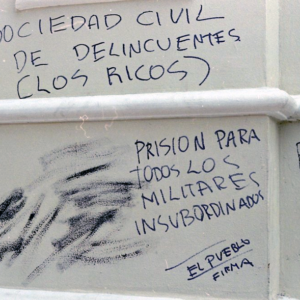 SOCIEDAD CIVIL
DE DELINCUENTES
(LOS RICOS)
PRISION PARA
TODOS LOS
MILITARES
INSUBORDINADOS
EL PUEBLO
FIRMA